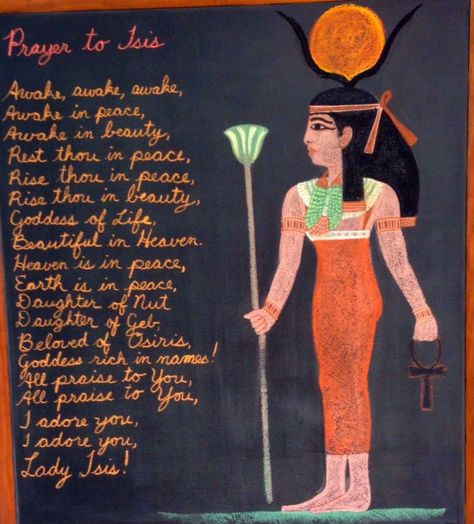 Prayer to Isis
Awake, awake, awake,
Awake in peace,
Awake in beauty,
Rest thou in peace,
Rise thou in peace,
Rise thou in beauty,
Goddess of Life,
Beautiful in Heaven.
Heaven is in peace,
Earth is in peace,
Daughter of Nut
Daughter of Geb,
Beloved of Osiris,
Goddess rich in names!
All praise to You,
All praise to You,
I adore you,
I adore you,
Lady Isis!